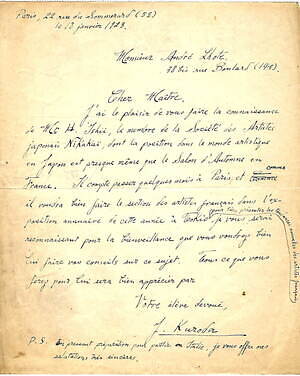 Paris, 22 rue du Sommerard (5e)
le 12 janvier 1923.
Monsieur André Lhote,
38 bis rue Boulard (14e)
Cher Maître,
J'ai le plaisir de vous faire la connaissance
de Mr H. Ishii, le membre de la Société des Artistes
japonais Nikakai, dont la position dans le monde artistique
en Japon est presque même que le Salon d'Automne en
France. Il compte passer quelques mois à Paris et comme
il voudra bien faire la section des artistes français dans l'ex-
position annuaire de cette année à Tokio, je vous serai
reconnaissant pour la bienveillance que vous voudrez bien
lui faire vos conseils sur ce sujet. Tout ce que vous
ferez pour lui sera bien apprécier par
Votre élève dévoué,
J. Kuroda
P.S. En present préparation pour partir en Italie, je vous offre mes
salutations très sincères.